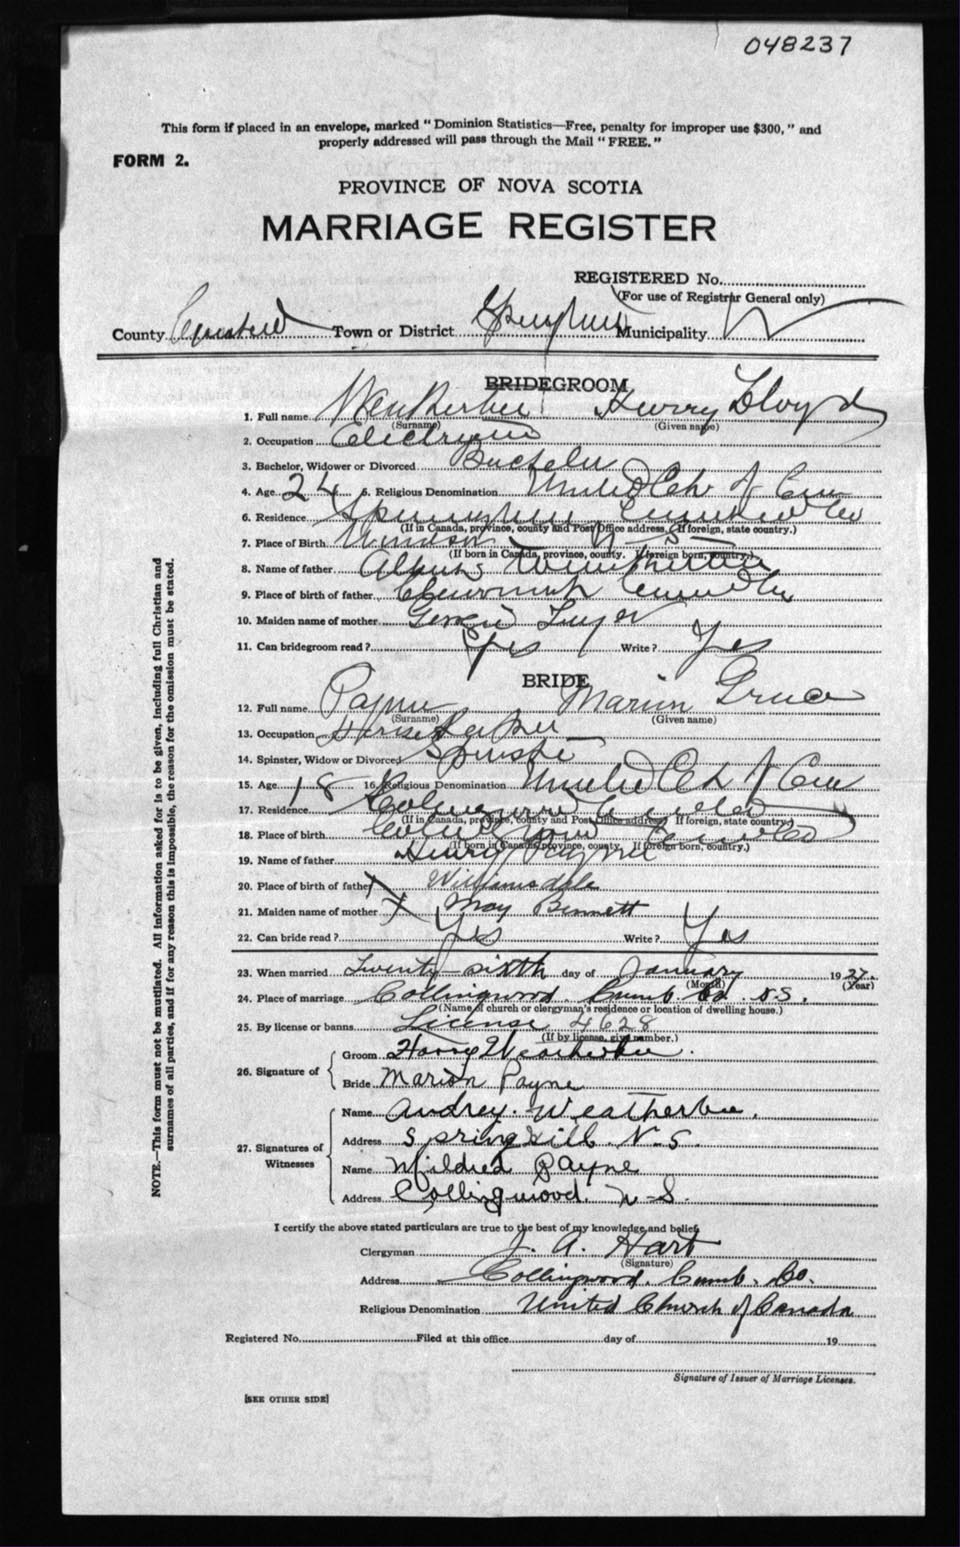 048237
This form if placed in an envelope, marked "Dominion Statistics—Free, penalty for improper use $300," and
properly addressed will pass through the Mail "FREE."
FORM 2.
PROVINCE OF NOVA SCOTIA
MARRIAGE REGISTER
REGISTERED No.
(For use of Registrar General only)
County Town or District Municipality
BRIDEGROOM
1. Full name Harry Lloyd
(Surname) (Given name)
2. Occupation
3. Bachelor, Widower or Divorced Bachelor
4. Age 24 5. Religious Denomination United Ch of Can
6. Residence
(If in Canada, province, county and Post Office address. If foreign, state country.)
7. Place of Birth Windsor N S
(If born in Canada, province, county. If foreign born, country.)
8. Name of father
9. Place of birth of father
10. Maiden name of mother
11. Can bridegroom read? Yes Write? Yes
BRIDE
12. Full name Payne Marion Grace
(Surname) (Given name)
13. Occupation
14. Spinster, Widow or Divorced Spinster
15. Age 18 16. Religious Denomination United Ch of Can
17. Residence
(If in Canada, province, county and Post Office address. If foreign, state country.)
18. Place of birth
(If born in Canada, province, county. If foreign born, country.)
19. Name of father Henry Payne
20. Place of birth of father Williamsdale
21. Maiden name of mother May Bennett
22. Can bride read? Yes Write? Yes
23. When married Twenty-sixth day of January 1927.
(Month) (Year)
24. Place of marriage Collingwood. Cumb. Co. N.S.
(Name of church or clergyman's residence or location of dwelling house.)
25. By license or banns License 4628
(If by license, give number.)
26. Signature of
Groom Harry Weatherbee.
Bride Marion Payne
27. Signatures of Witnesses
Name Audrey. Weatherbee.
Address Springhill N.S.
Name Mildred Payne
Address Collingwood. N-S.
I certify the above stated particulars are true to the best of my knowledge and belief.
Clergyman J. A. Hart
(Signature)
Address Collingwood. Cumb. Co.
Religious Denomination United Church of Canada
Registered No. Filed at this office day of 19
Signature of Issuer of Marriage Licenses.
[SEE OTHER SIDE]
NOTE.—This form must not be mutilated. All information asked for is to be given, including full Christian and
surnames of all parties, and if for any reason this is impossible, the reason for the omission must be stated.